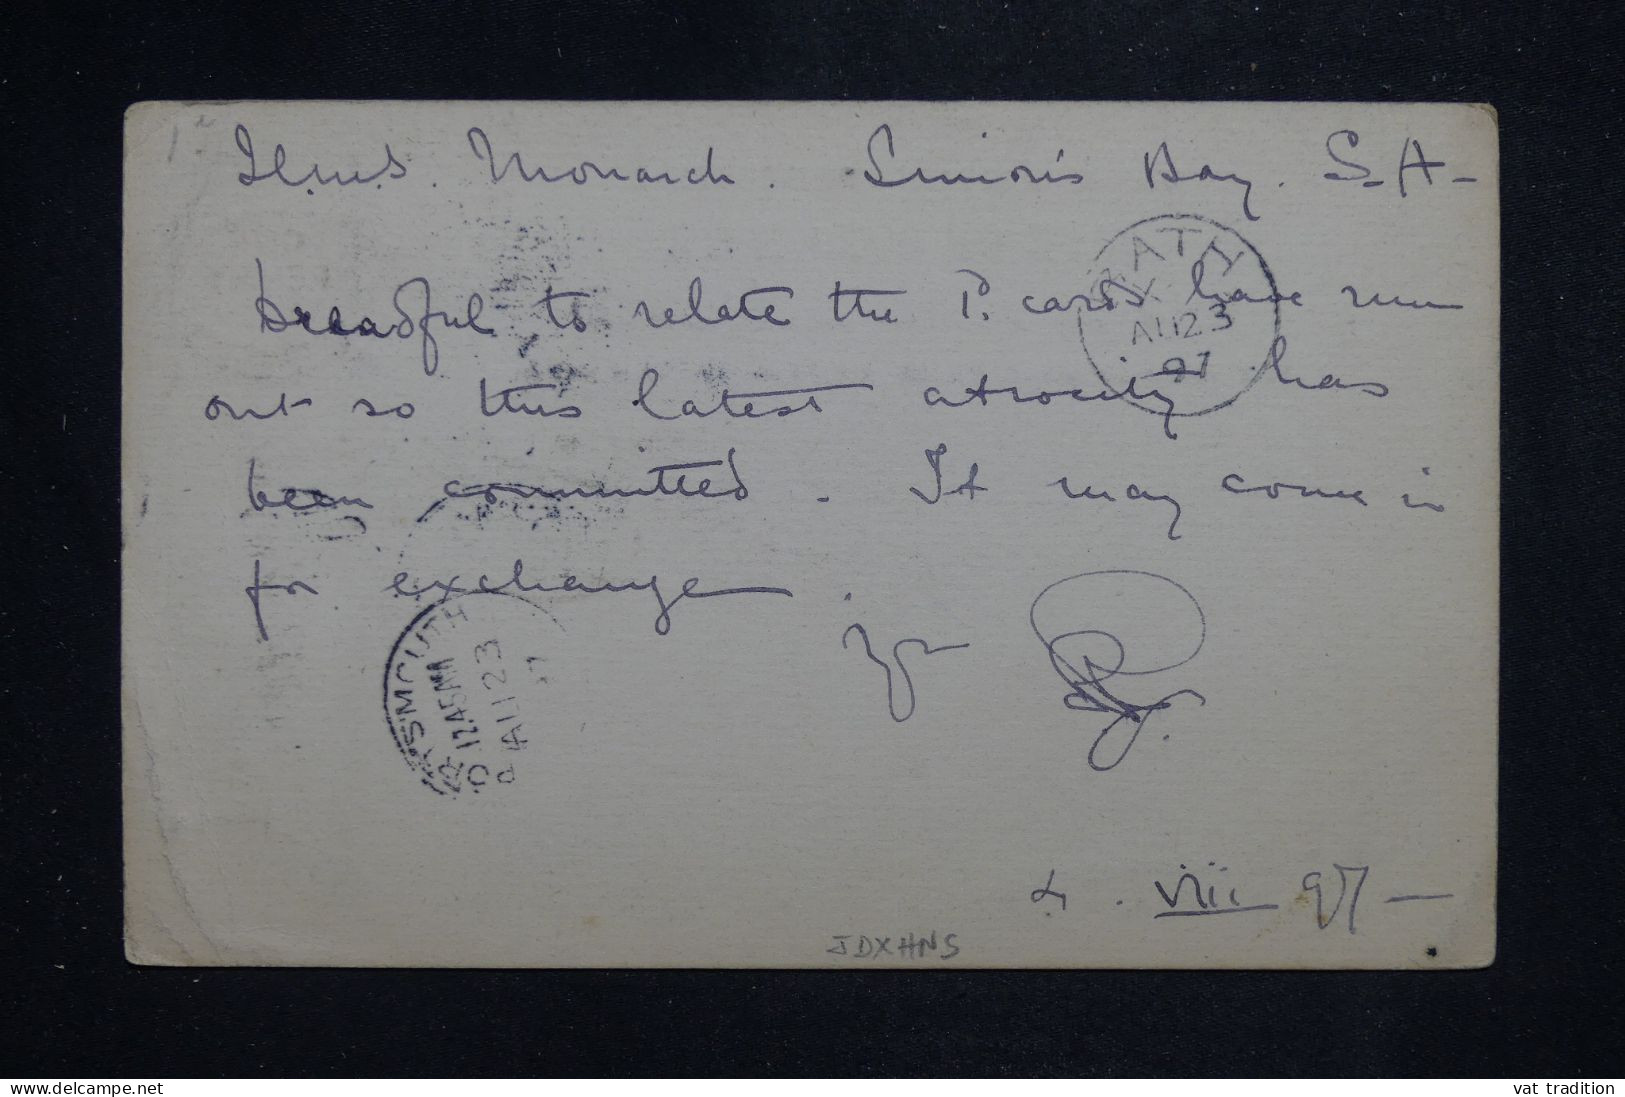 H.M.S. Monarch. Simon's Bay. S.A-
Dreadful to relate the P. cards have run
out so this latest atrocity has
been committed. It may come in
for exchange.
Yr
4. viii 97 —
BATH
X
AU 23
97
PORSMOUTH
12.45 AM
AU 23
97
JDXHNS
www.delcampe.net
vat tradition